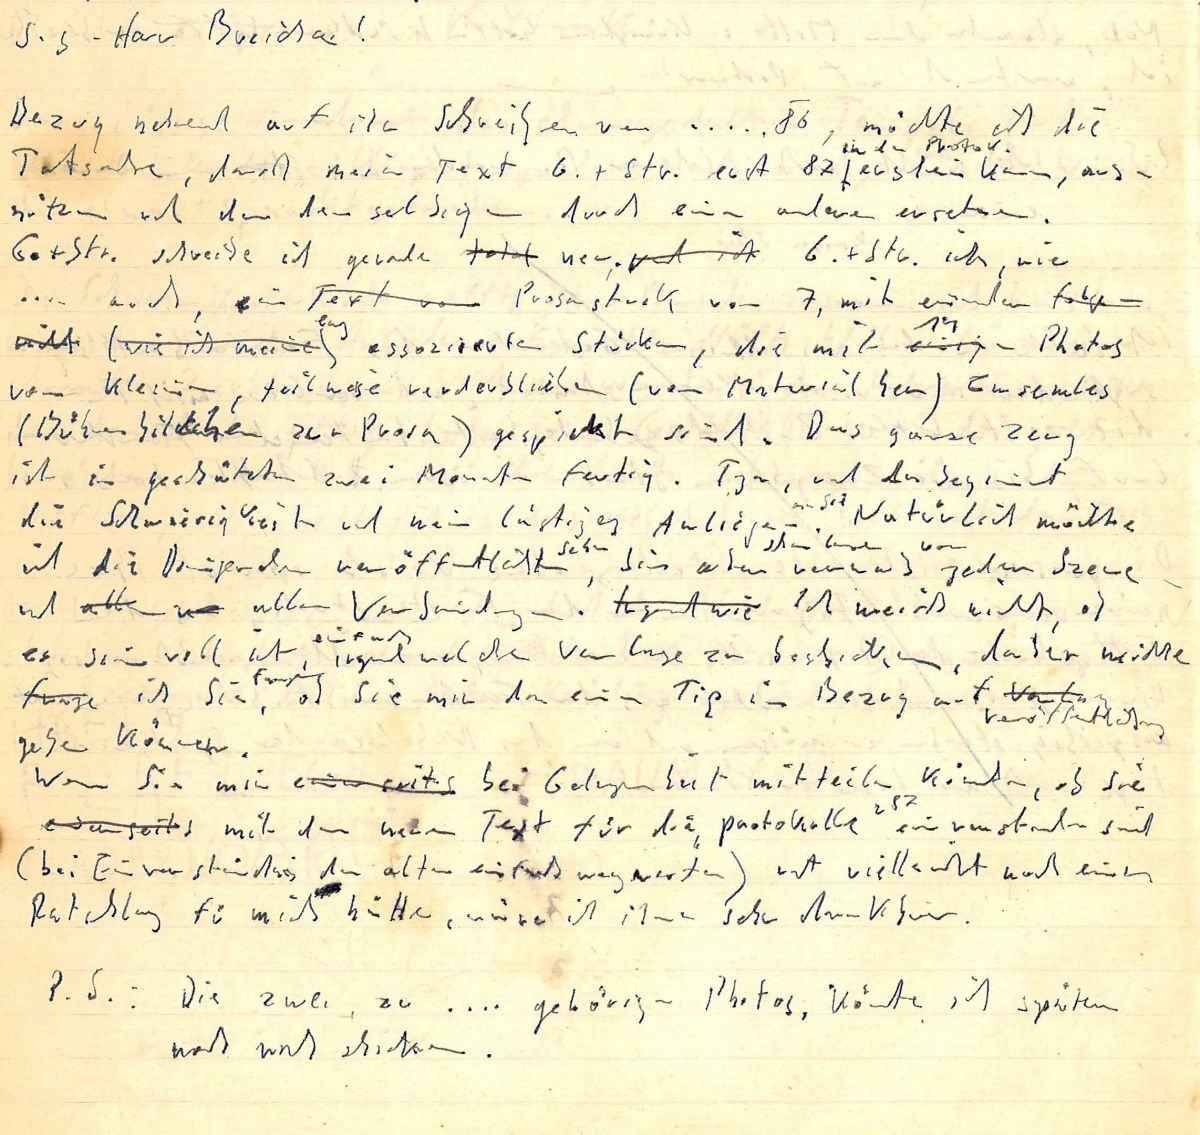 S. g. Herr Breicha!
Bezug nehmend auf ihr Schreiben vom ..... 86, möchte ich die
in den Protok.
Tatsache, dass mein Text G. + Str. erst 87 erscheinen kann, aus-
nützen und den denselbigen durch einen anderen ersetzen.
G. + Str. schreibe ich gerade total neu, und ist G. + Str. ich, wie
.... auch, ein Text von Prosastück von 7, mit einander
nicht (wie ich meine) eng assoziierten Stücken, die mit einigen 14 Photos
von kleinen, teilweise verderblichen (vom Material her) Ensembles
(Bühnenbildchen zur Prosa) gespickt sind. Das ganze Zeug
ist in geschätzten zwei Monaten fertig. Tja, und da beginnt
die Schwierigkeit und mein lästiges Anliegen an Sie. Natürlich möchte
ich die Dinger dann veröffentlicht sehen, bin aber von jeder Szene
und allen allen Verbindungen. Irgendwie Ich weiß nicht, ob
es sinnvoll ist, einfach irgendwelche Verlage zu beschicken, daher möchte
frage ich Sie fragen, ob Sie mir da einen Tip in Bezug auf Verlag
Veröffentlichung
geben können.
Wenn Sie mir einerseits bei Gelegenheit mitteilen könnten, ob Sie
einerseits mit dem neuen Text für die "protokolle" 87 einverstanden sind
(bei Einverständnis den alten einfach wegwerfen) und vielleicht noch einen
Ratschlag für mich hätten, wäre ich ihnen sehr dankbar.
P. S.: Die zwei, zu .... gehörigen Photos, könnte ich später
noch schicken.